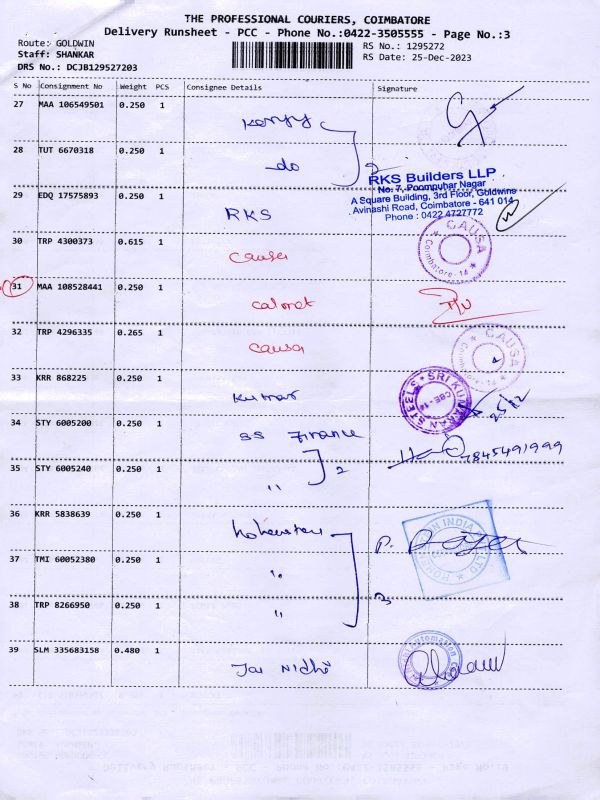 THE PROFESSIONAL COURIERS, COIMBATORE
Delivery Runsheet - PCC - Phone No.:0422-3505555 - Page No.:3
Route: GOLDWIN
RS No.: 1295272
Staff: SHANKAR
RS Date: 25-Dec-2023
DRS No.: DCJB129527203
S No Consignment No Weight PCS Consignee Details Signature
27 MAA 106549501 0.250 1
28 TUT 6670318 0.250 1 do 2
RKS Builders LLP
No. 7, Poompuhar Nagar
A Square Building, 3rd Floor, Goldwins
Avinashi Road, Coimbatore - 641 014
Phone : 0422 4727772
29 EDQ 17575893 0.250 1 RKS
30 TRP 4300373 0.615 1 Causa
CAUSA
Coimbatore-14
31 MAA 108528441 0.250 1
32 TRP 4296335 0.265 1 Causa
CAUSA
33 KRR 868225 0.250 1 Kumar
SRI KUMARAN STEELS
CBE-14
34 STY 6005200 0.250 1 SS Finance
7845491999
35 STY 6005240 0.250 1 " 2
36 KRR 5838639 0.250 1
37 TMI 60052380 0.250 1 "
38 TRP 8266950 0.250 1 " 3
39 SLM 335683158 0.480 1 Jai Nidhi